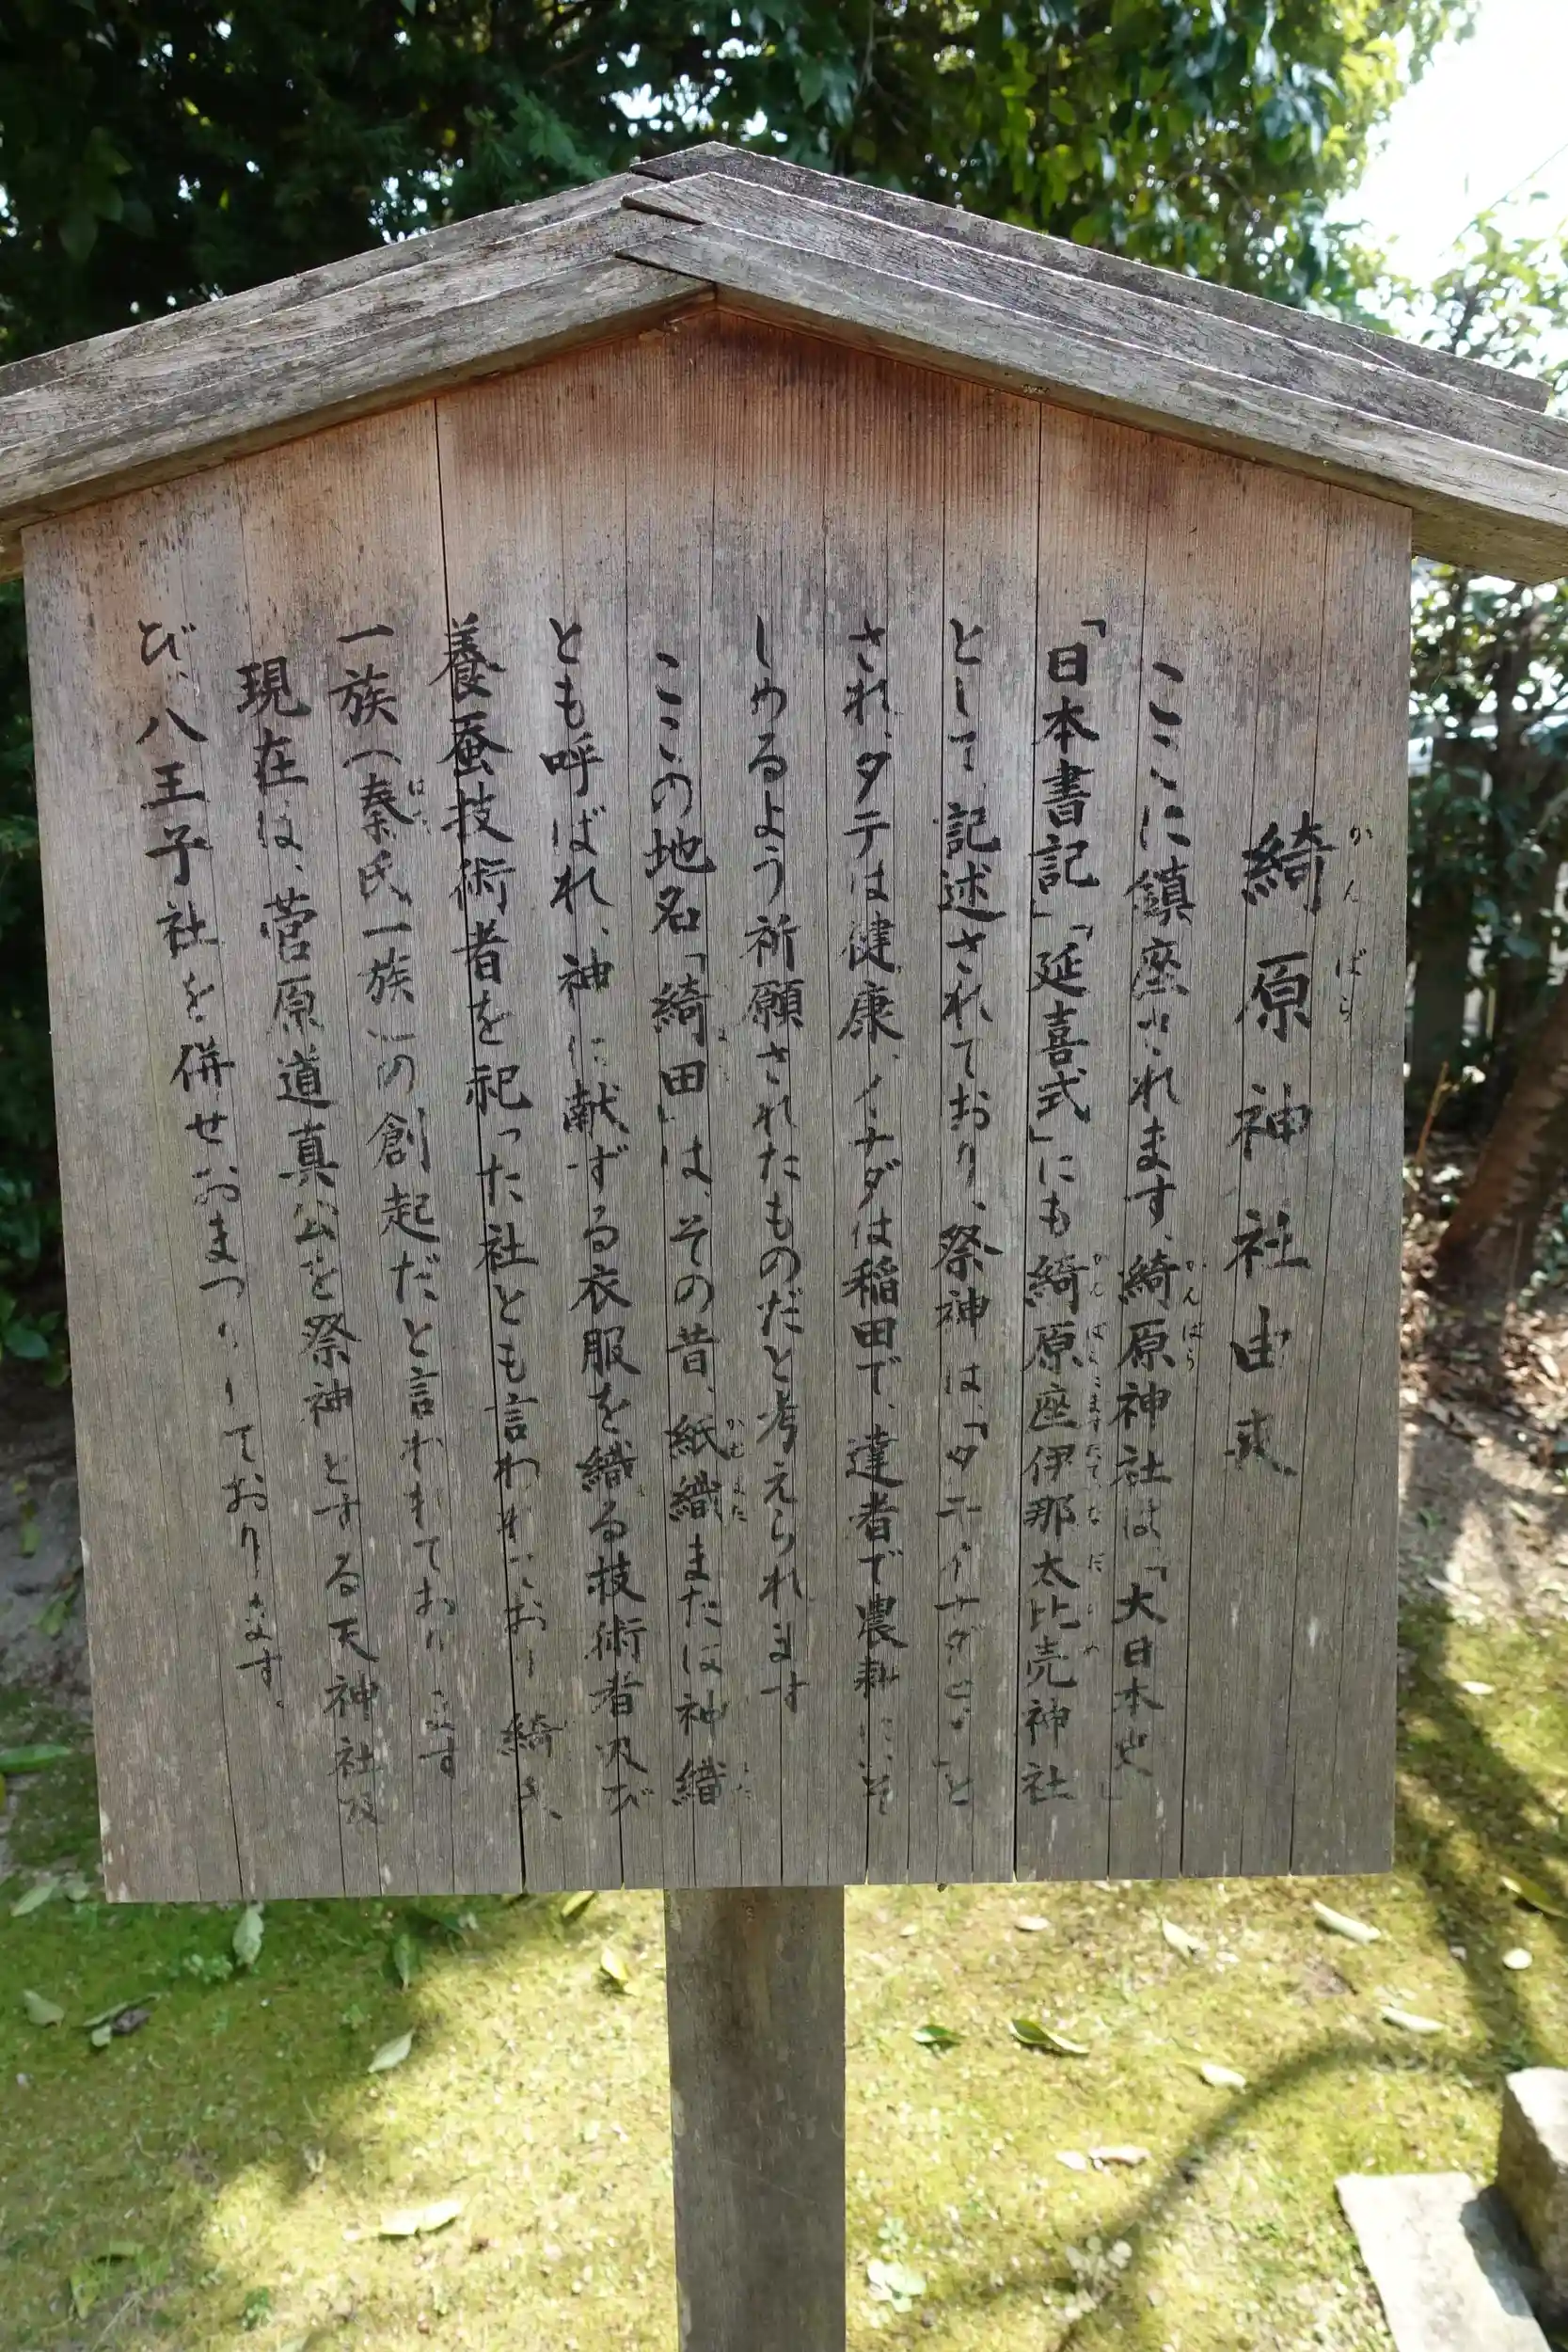 綺原神社由来
ここに鎮座されます、綺原神社は、「大日本史」
「日本書記」「延喜式」にも綺原座伊那太比売神社
として、記述されており、祭神は、「タテイナダヒメ」と
され、タテは健康、イナダは稲田で、達者で農耕にいそ
しめるよう祈願されたものだと考えられます
ここの地名「綺田」は、その昔、紙織または神織
とも呼ばれ、神に献ずる衣服を織る技術者及び
養蚕技術者を祀った社とも言われており 綺
一族(秦氏一族)の創起だと言われております
現在は、菅原道真公を祭神とする天神社及
び、八王子社を併せおまつりしております。